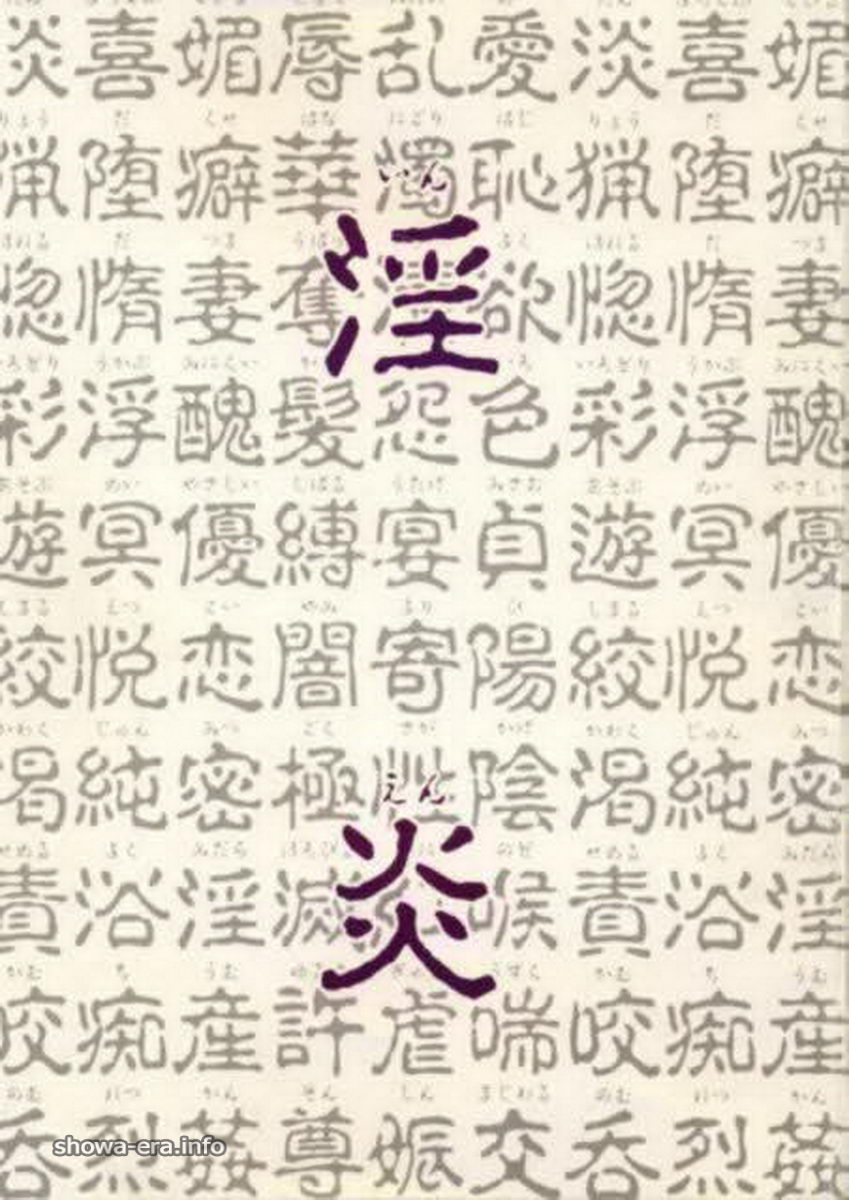 いん
淫
えん
炎
淡 喜 媚 辱 乱 愛 淡 喜 媚
りょう だ くせ はな にごり はじ りょう だ くせ
猟 堕 癖 華 濁 恥 猟 堕 癖
ほれる だ つま よく ほれる だ つま
惚 惰 妻 奪 欲 惚 惰 妻
いろどり うかぶ みにくい いろどり うかぶ みにくい
彩 浮 醜 髪 怨 色 彩 浮 醜
あそぶ めい やさしい しばる うたげ みさお あそぶ めい やさしい
遊 冥 優 縛 宴 貞 遊 冥 優
しまる えつ こい やみ より ひ しまる えつ こい
絞 悦 恋 闇 寄 陽 絞 悦 恋
かわく じゅん みつ ごく さが かげ かわく じゅん みつ
渇 純 密 極 性 陰 渇 純 密
せめる よく みだら ほろびる のど せめる よく みだら
責 浴 淫 滅 喉 責 浴 淫
かむ ち うむ かむ ち うむ
咬 痴 産 許 虐 喘 咬 痴 産
のむ れつ かん そん しん まじわる のむ れつ かん
呑 烈 姦 尊 娠 交 呑 烈 姦
showa-era.info